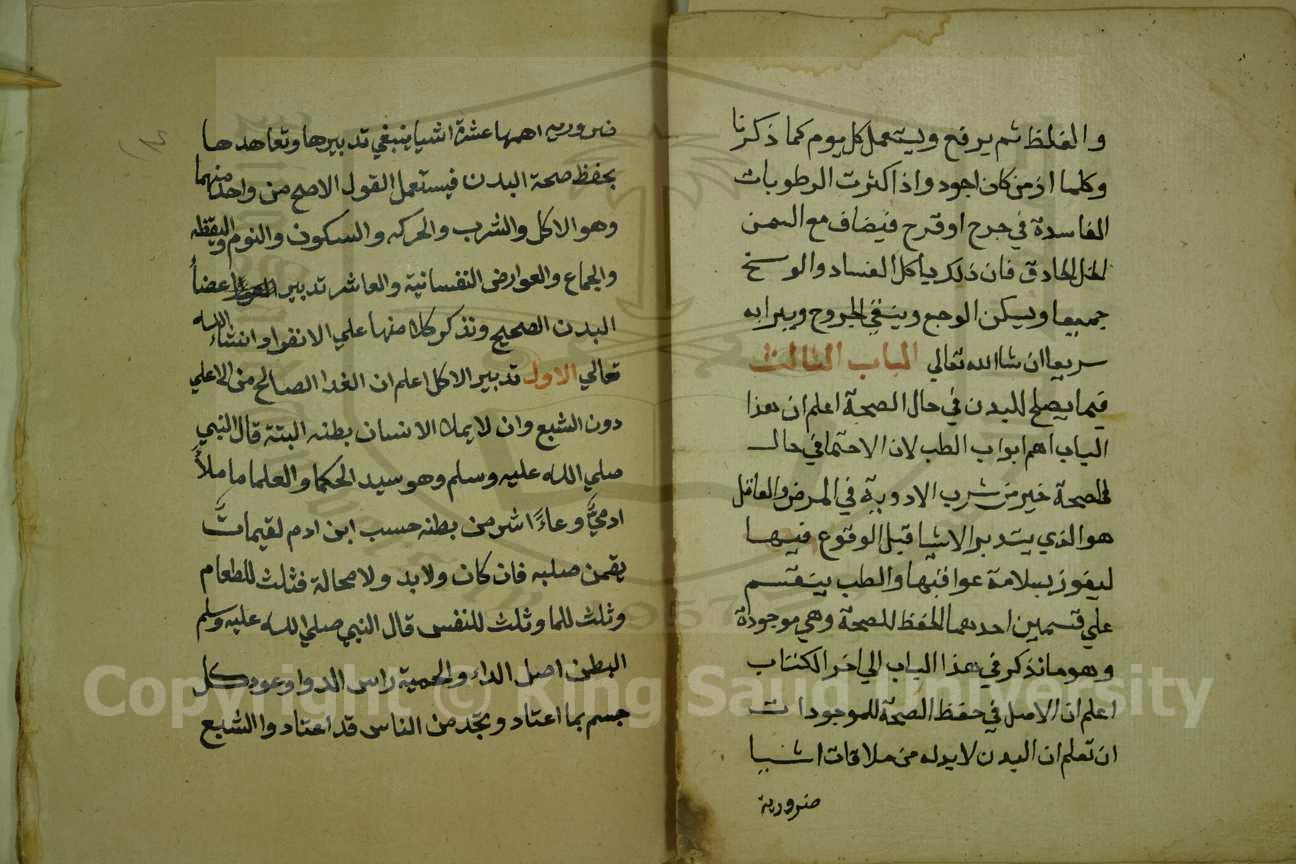 والغلظ ثم يرفع ويستعمل كل يوم كما ذكرنا
وكلما ازمن كان اجود واذا كثرت الرطوبات
الفاسدة في جرح او قرح فيضاف مع السمن
الخل الحادق فان ذلك يأكل الفساد والوسخ
جميعا ويسكن الوجع وينقي الجروح ويبرا به
سريعا ان شا الله تعالي الباب الثالث
فيما يصلح للبدن في حال الصحة اعلم ان هذا
الباب اهم ابواب الطب لان الاحتما في حال
الصحة خير من شرب الادوية في المرض والعاقل
هو الذي يتدبر الاشيا قبل الوقوع فيها
ليفوز بسلامة عواقبها والطب ينقسم
علي قسمين احدهما الحفظ للصحة وهي موجودة
وهو ما نذكر في هذا الباب الي اخر الكتاب
اعلم ان الاصل في حفظ الصحة للموجودات
ان تعلم ان البدن لا بد له من ملاقات اشيا
ضرورية
ضروريه اهمها عشرة اشيا ينبغي تدبيرها وتعاهدها
بحفظ صحة البدن فيستعمل القول الاصح من واحد منهما
وهو الاكل والشرب والحركه والسكون والنوم واليقظه
والجماع والعوارض النفسانية والعاشر تدبير اعضأ
البدن الصحيح ونذكر كلا منها علي الانفراد انشاء الله
تعالي الاول تدبير الاكل اعلم ان الغدا الصالح من
دون الشبع وان لا يملا الانسان بطنه البتة قال النبي
صلي الله عليه وسلم وهو سيد الحكما والعلما ما ملأ
ادميٌّ وعاءً اشر من بطنه حسب ابن ادم لقيمات
يقمن صلبه فان كان ولا بد ولا محالة فثلث للطعام
وثلث للما وثلث للنفس قال النبي صلي الله عليه وسلم
البطن اصل الداء والحمية راس الدوا وعودوا كل
جسم بما اعتاد ونجد من الناس قد اعتاد والشبع
Copyright © King Saud University
1957